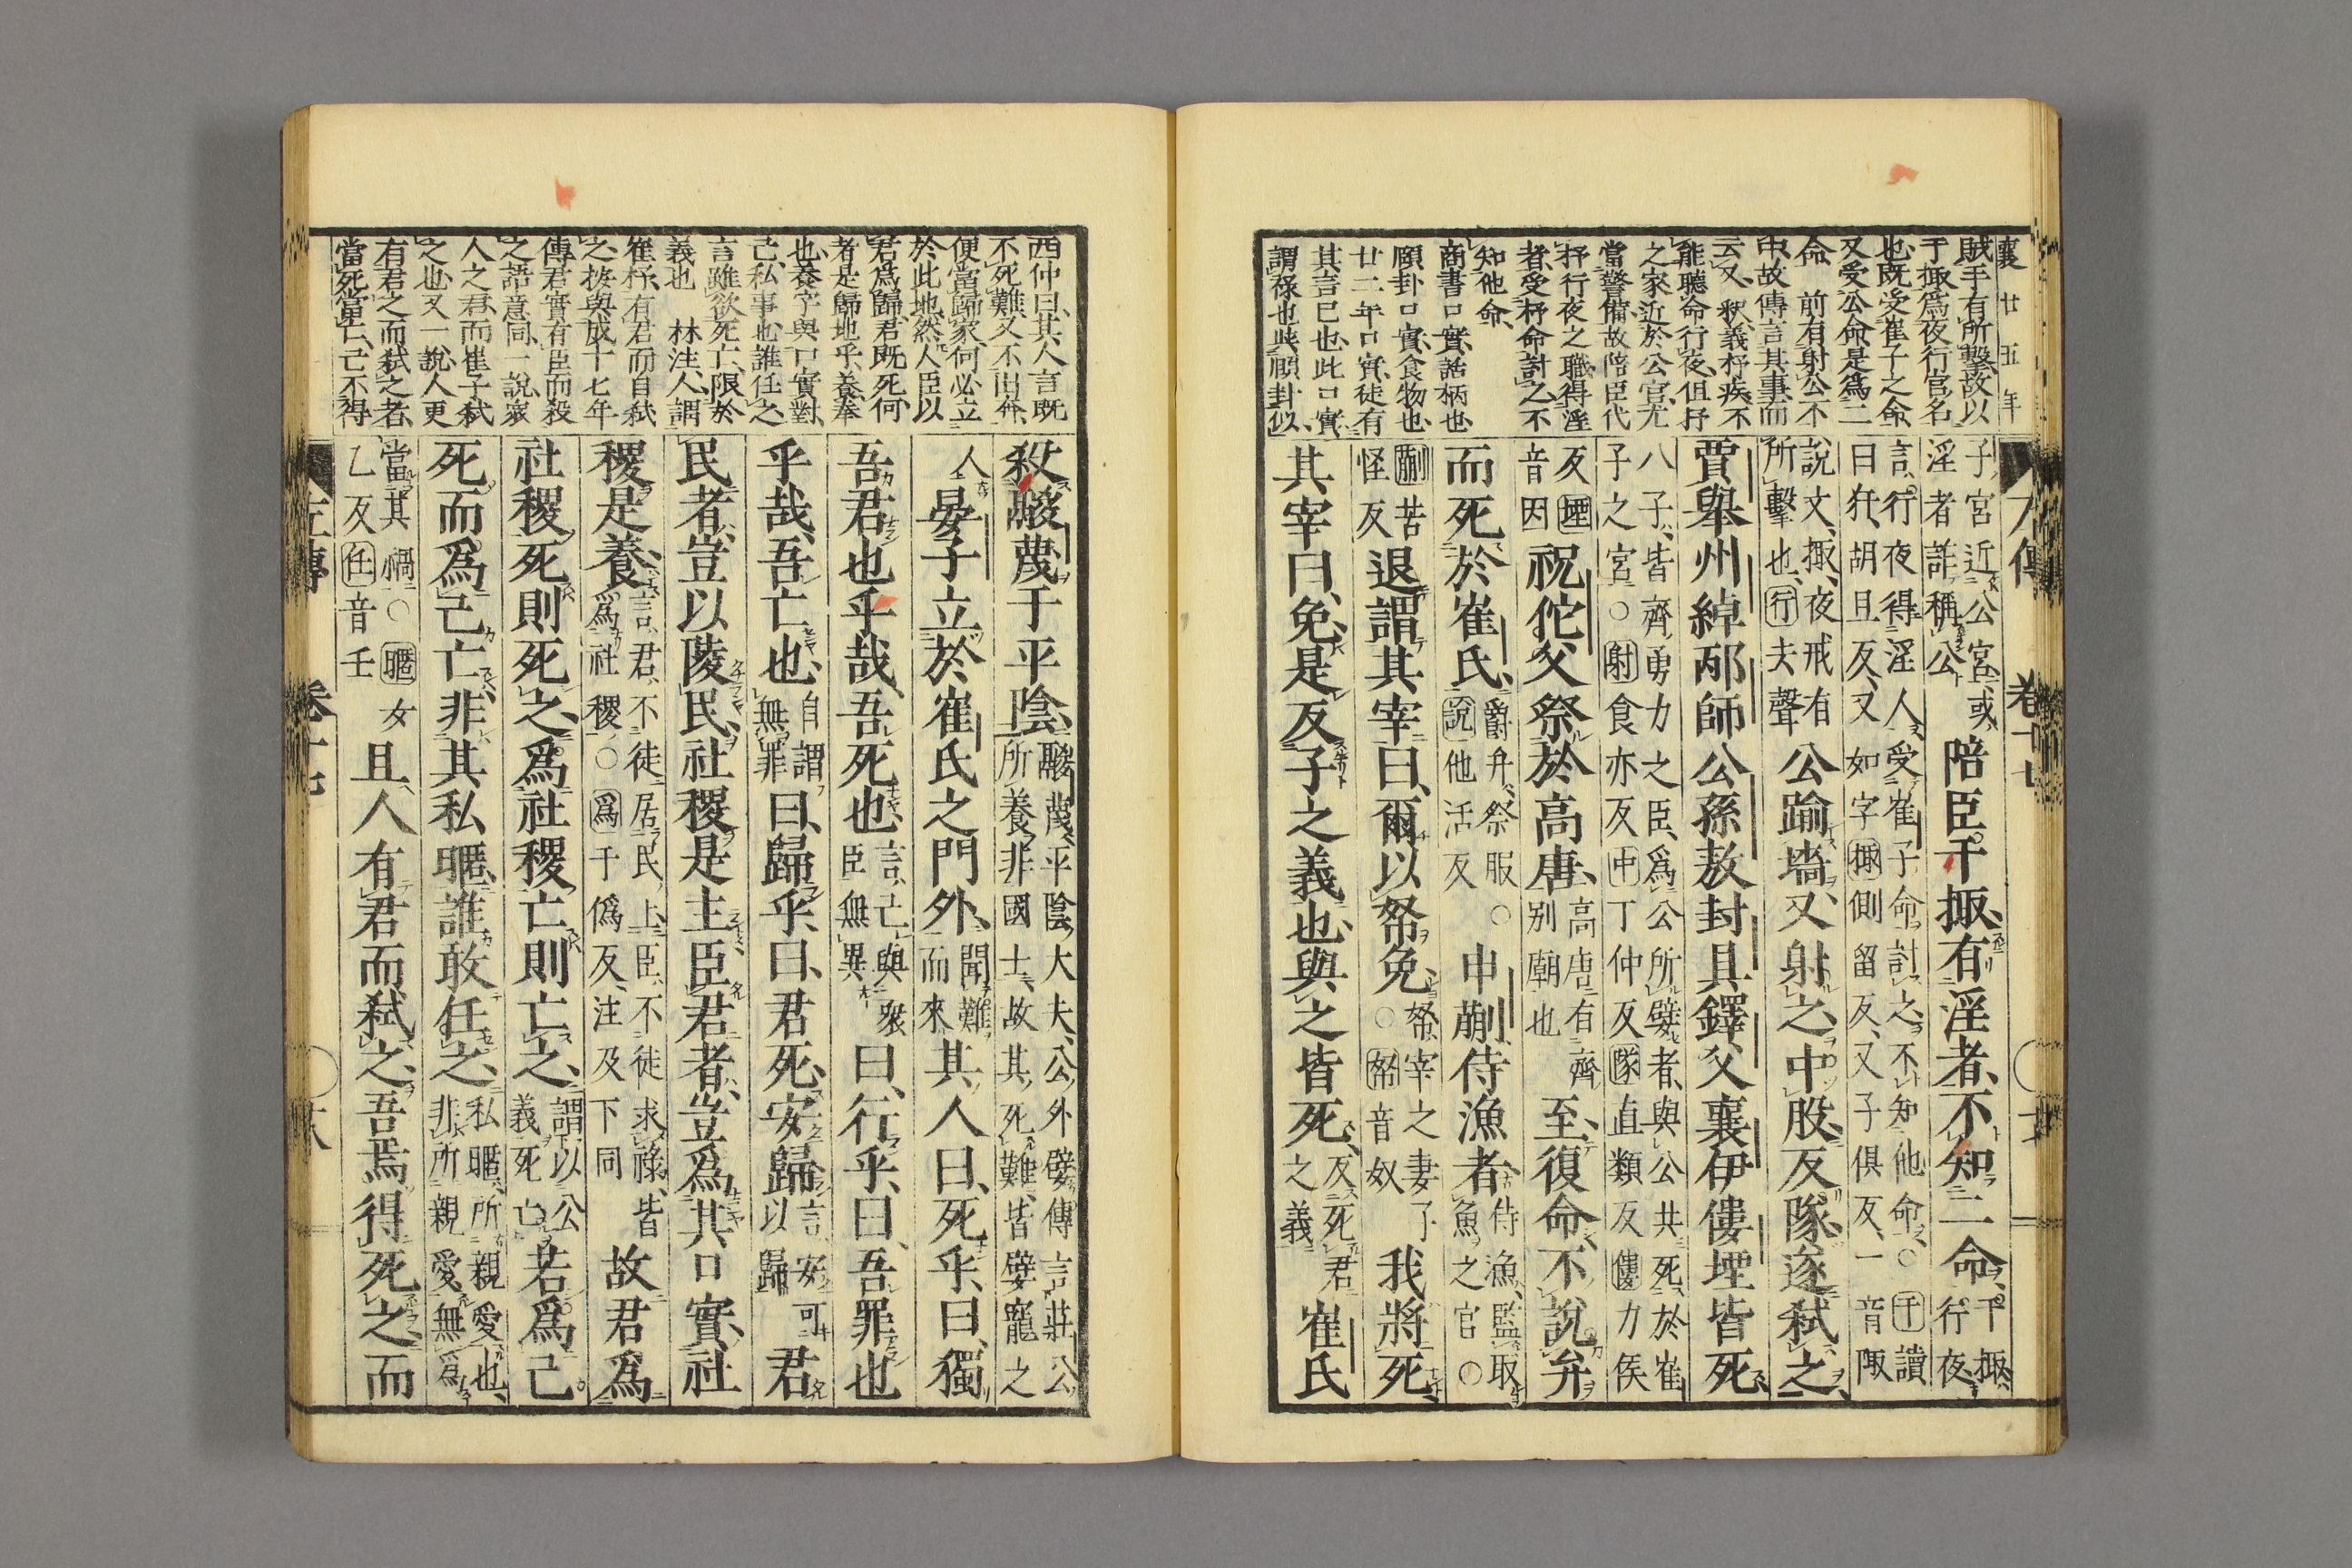 襄廿五年
賊手有所擊故以
于掫爲夜行官名
也既受崔子之命
又受公命是爲二
命 前有射公不
中故傳言其事而
云又 釈義杼疾不
能聽命行夜但杼
之家近於公宮尤
當警備故陪臣代
杼行夜之職得淫
者受杼命討之不
知他命
商書口實話柄也
頤卦口實食物也
廿二年口實徒有
其言已也此口實
謂祿也此頤卦似
左傳 卷十七
子宮近公宮或淫者詐稱公陪臣干掫有淫者不知二命干掫行夜
言行夜得淫人受崔子命討之不知他命○干讀曰犴胡旦反又如字掫側留反又子俱反一音陬
說文掫夜戒有所擊也行夫聲公踰墻又射之中股反隊遂弒之
賈舉州綽邴師公孫敖封具鐸父襄伊僂堙皆死
八子皆齊勇力之臣爲公所嬖者與公共死於崔子之宮○射食亦反中丁仲反隊直類反僂力侯
反堙音因祝佗父祭於高唐高唐有齊別廟也至復命不說弁
而死於崔氏爵弁祭服○說他活反申蒯侍漁者侍漁監取魚之官○
蒯苦怪反退謂其宰曰爾以帑免帑宰之妻子○帑音奴我將死
其宰曰免是反子之義也與之皆死反死君之義崔氏
西仲曰其人言既
不死難又不出奔
便當歸家何必立
於此地然人臣以
君爲歸君既死何
者是歸地乎 養奉
也養字與口實對
己私事也誰任之
言雖欲死亡限於
義也 林注人謂
崔杼有君而自弒
之按與成十七年
傳君實有臣而殺
之語意同一說寂
人之君而崔子弒
之也又一說人更
有君之而弒之者
當死當亡己不得
殺鬷蔑于平陰鬷蔑平陰大夫公外嬖傳言莊公所養非國士故其死難皆嬖寵之
人晏子立於崔氏之門外聞難而來其人曰死乎曰獨
吾君也乎哉吾死也言亡與眾臣無異曰行乎曰吾罪也
乎哉吾亡也自謂無罪曰歸乎曰君死安歸言安可以歸君
民者豈以陵民社稷是主臣君者豈爲其口實社
稷是養言君不徒居民上臣不徒求祿皆爲社稷○爲于僞反注及下同故君爲
社稷死則死之爲社稷亡則亡之謂以公義死亡若爲己
死而爲己亡非其私暱誰敢任之私暱所親愛也非所親愛無爲
當其禍○暱女乙反任音壬且人有君而弒之吾焉得死之而
左傳 卷十七